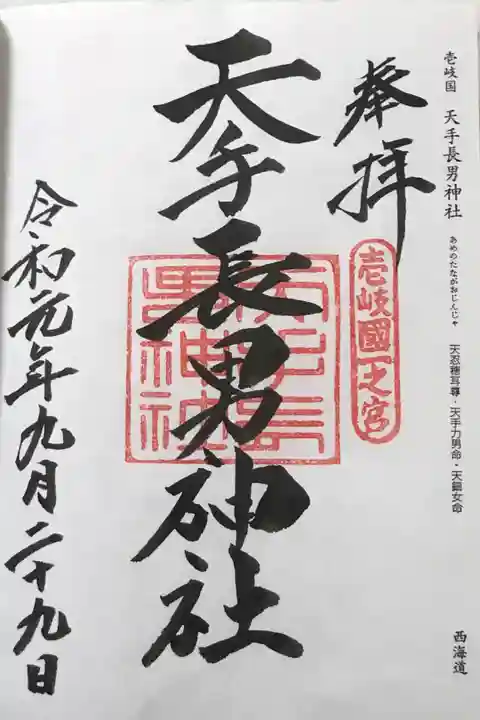 壱岐国 天手長男神社 あめのたながおじんじゃ 天忍穂耳尊・天手力男命・天鈿女命 西海道
奉拝
壱岐國一之宮
天手長男神社
天手長男神社
令和元年九月二十九日